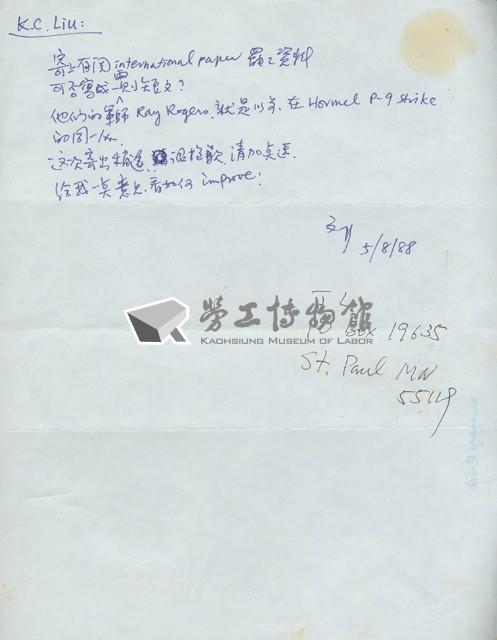 K.C. Liu:
寄上有關 international paper 罷工資料
可否寫成一則短文?
他們的軍師 Ray Rogers 就是以前在 Hormel P-9 strike
的同一人.
这次寄出稍遲, 抱歉, 請加点速.
給我一点意見, 看如何 improve!
5/8/88
勞工博物館
KAOHSIUNG MUSEUM OF LABOR
Box 19635
St. Paul MN
55119